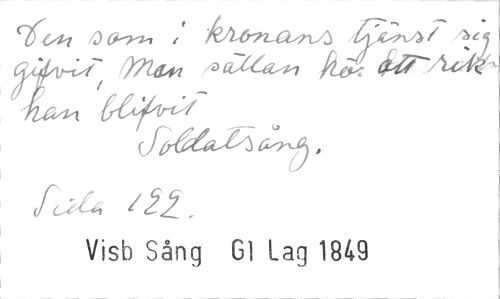 Den som i kronans tjänst sig
gifvit, Man sällan hör att rik
han blifvit
Soldatsång.
Sida 122.
Visb Sång Gl Lag 1849